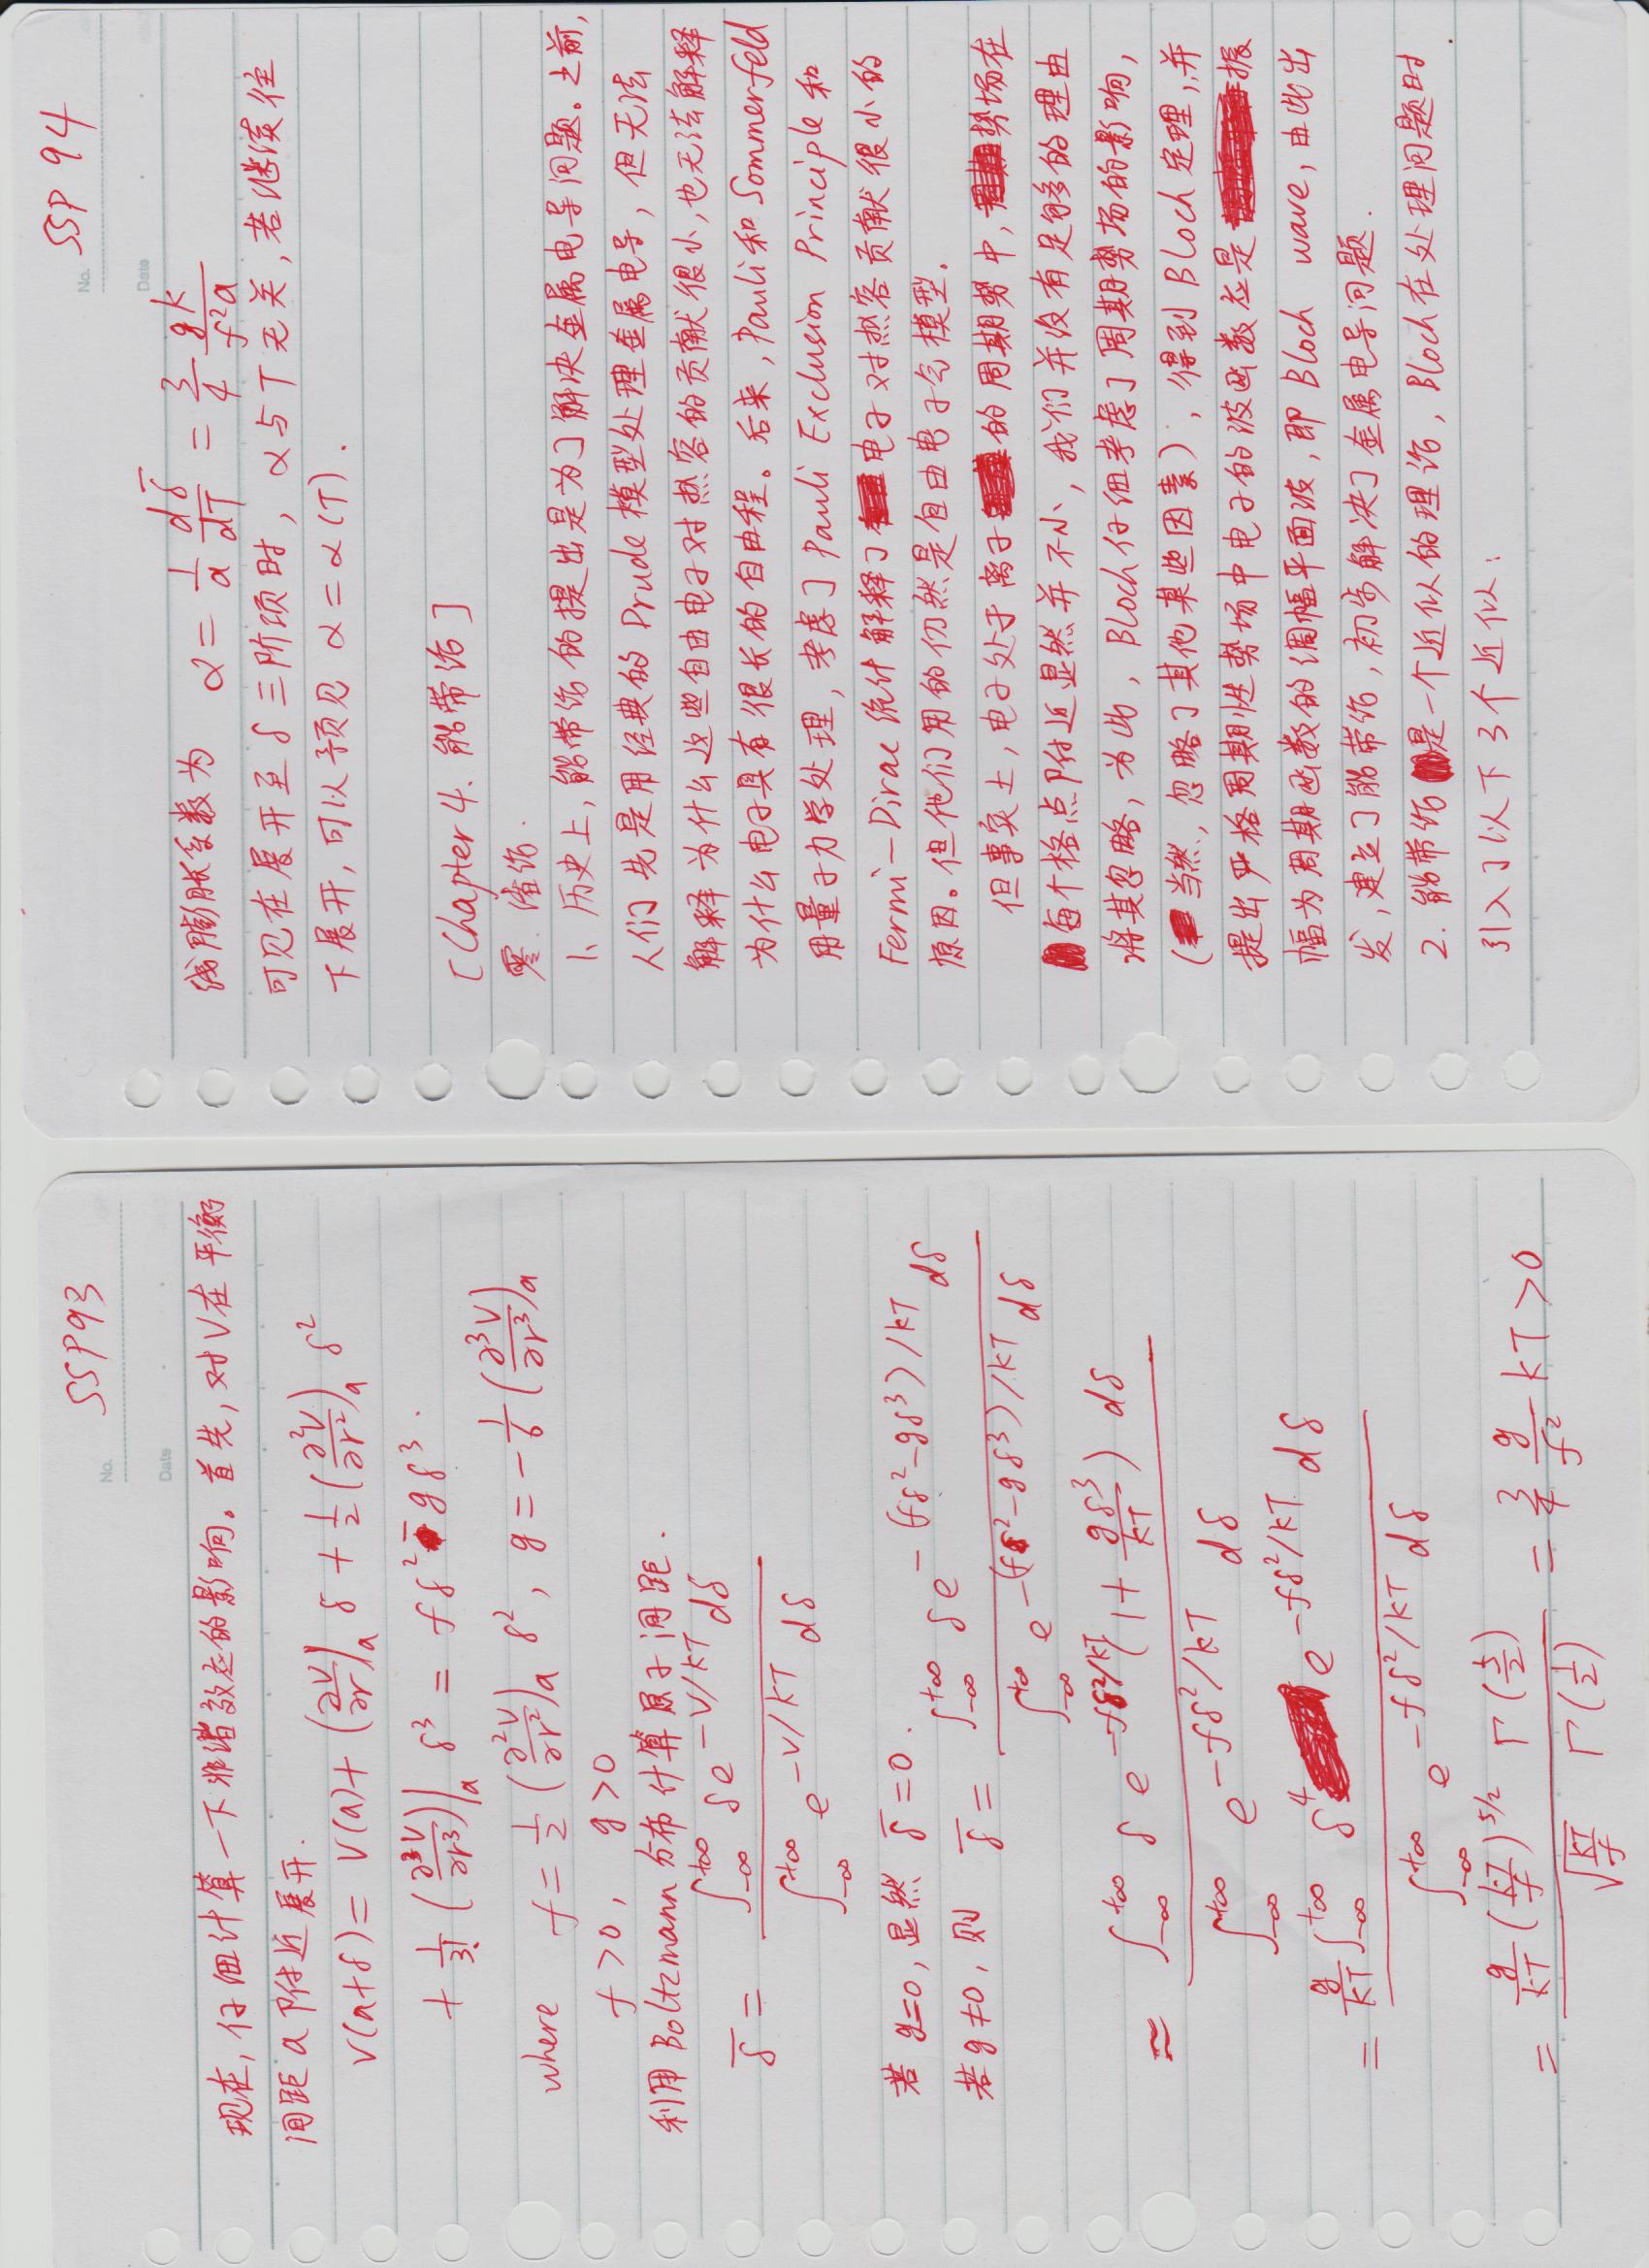 SSP93
No.
Date
现在,仔细计算一下非谐效应的影响。首先,对V在平衡
间距a附近展开.
V(a+δ)= V(a)+ (∂V/∂r)_a δ + 1/2 (∂²V/∂r²)_a δ²
+ 1/3! (∂³V/∂r³)|_a δ³ = fδ² - gδ³.
where f = 1/2 (∂²V/∂r²)_a δ², g = -1/6 (∂³V/∂r³)_a
f>0, g>0
利用Boltzmann分布计算原子间距.
δ̄ = ∫_{-∞}^{+∞} δe^{-V/kT} dδ / ∫_{-∞}^{+∞} e^{-V/kT} dδ
若g=0,显然 δ̄=0.
若g≠0,则 δ̄ = ∫_{-∞}^{+∞} δe^{-(fδ²-gδ³)/kT} dδ / ∫_{-∞}^{+∞} e^{-(fδ²-gδ³)/kT} dδ
≈ ∫_{-∞}^{+∞} δ e^{-fδ²/kT} (1+ gδ³/kT) dδ / ∫_{-∞}^{+∞} e^{-fδ²/kT} dδ
= g/kT ∫_{-∞}^{+∞} δ⁴ e^{-fδ²/kT} dδ / ∫_{-∞}^{+∞} e^{-fδ²/kT} dδ
= g/kT (kT/f)^{5/2} Γ(5/2) / √(kT/f) Γ(1/2) = 3/4 g/f² kT >0
SSP 94
No.
Date
线膨胀系数为 α = 1/a dδ̄/dT = 3/4 gk/f²a
可见在展开至δ三阶项时, α与T无关,若继续往
下展开,可以预见 α=α(T).
[Chapter 4. 能带论]
零. 绪论.
1、历史上,能带论的提出是为了解决金属电导问题。之前,
人们先是用经典的Drude模型处理金属电导,但无法
解释为什么这些自由电子对热容的贡献很小,也无法解释
为什么电子具有很长的自由程。后来,Pauli和Sommerfeld
用量子力学处理,考虑了Pauli Exclusion Principle和
Fermi-Dirac统计解释了电子对热容贡献很小的
原因。但他们用的仍然是自由电子气模型.
但事实上,电子处于离子的周期势中,势场在
每个格点附近显然并不小,我们并没有足够的理由
将其忽略,为此,Bloch仔细考虑了周期势场的影响,
(当然,忽略了其他某些因素),得到Bloch定理,并
提出严格周期性势场中电子的波函数应是振
幅为周期函数的调幅平面波,即Bloch wave,由此出
发,建立了能带论,初步解决了金属电导问题.
2. 能带论是一个近似的理论,Bloch在处理问题时
引入了以下3个近似: